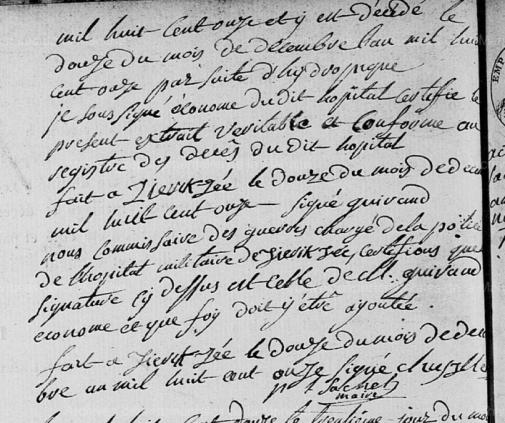 mil huit Cent onze et y est décédé le
douze du mois de décembre l'an mil huit
Cent onze par suite d'hydropique
je sous signé économe du dit hopital Certifie le
present extrait veritable et Conforme au
registre des decès du dit hopital
fait a Zierik-Zée le douze du mois de decem
mil huit cent onze - signé guivaud
nous Commissaire des guerres chargé de la police
de l'hopital militaire de Zierik Zée, Certifions que
signature Cy dessus est Celle de M. guivaud
econome et que foy doit y être ajoutée.
fait a Zierik-Zée le douze du mois de decem
bre an mil huit cent onze signé
maire